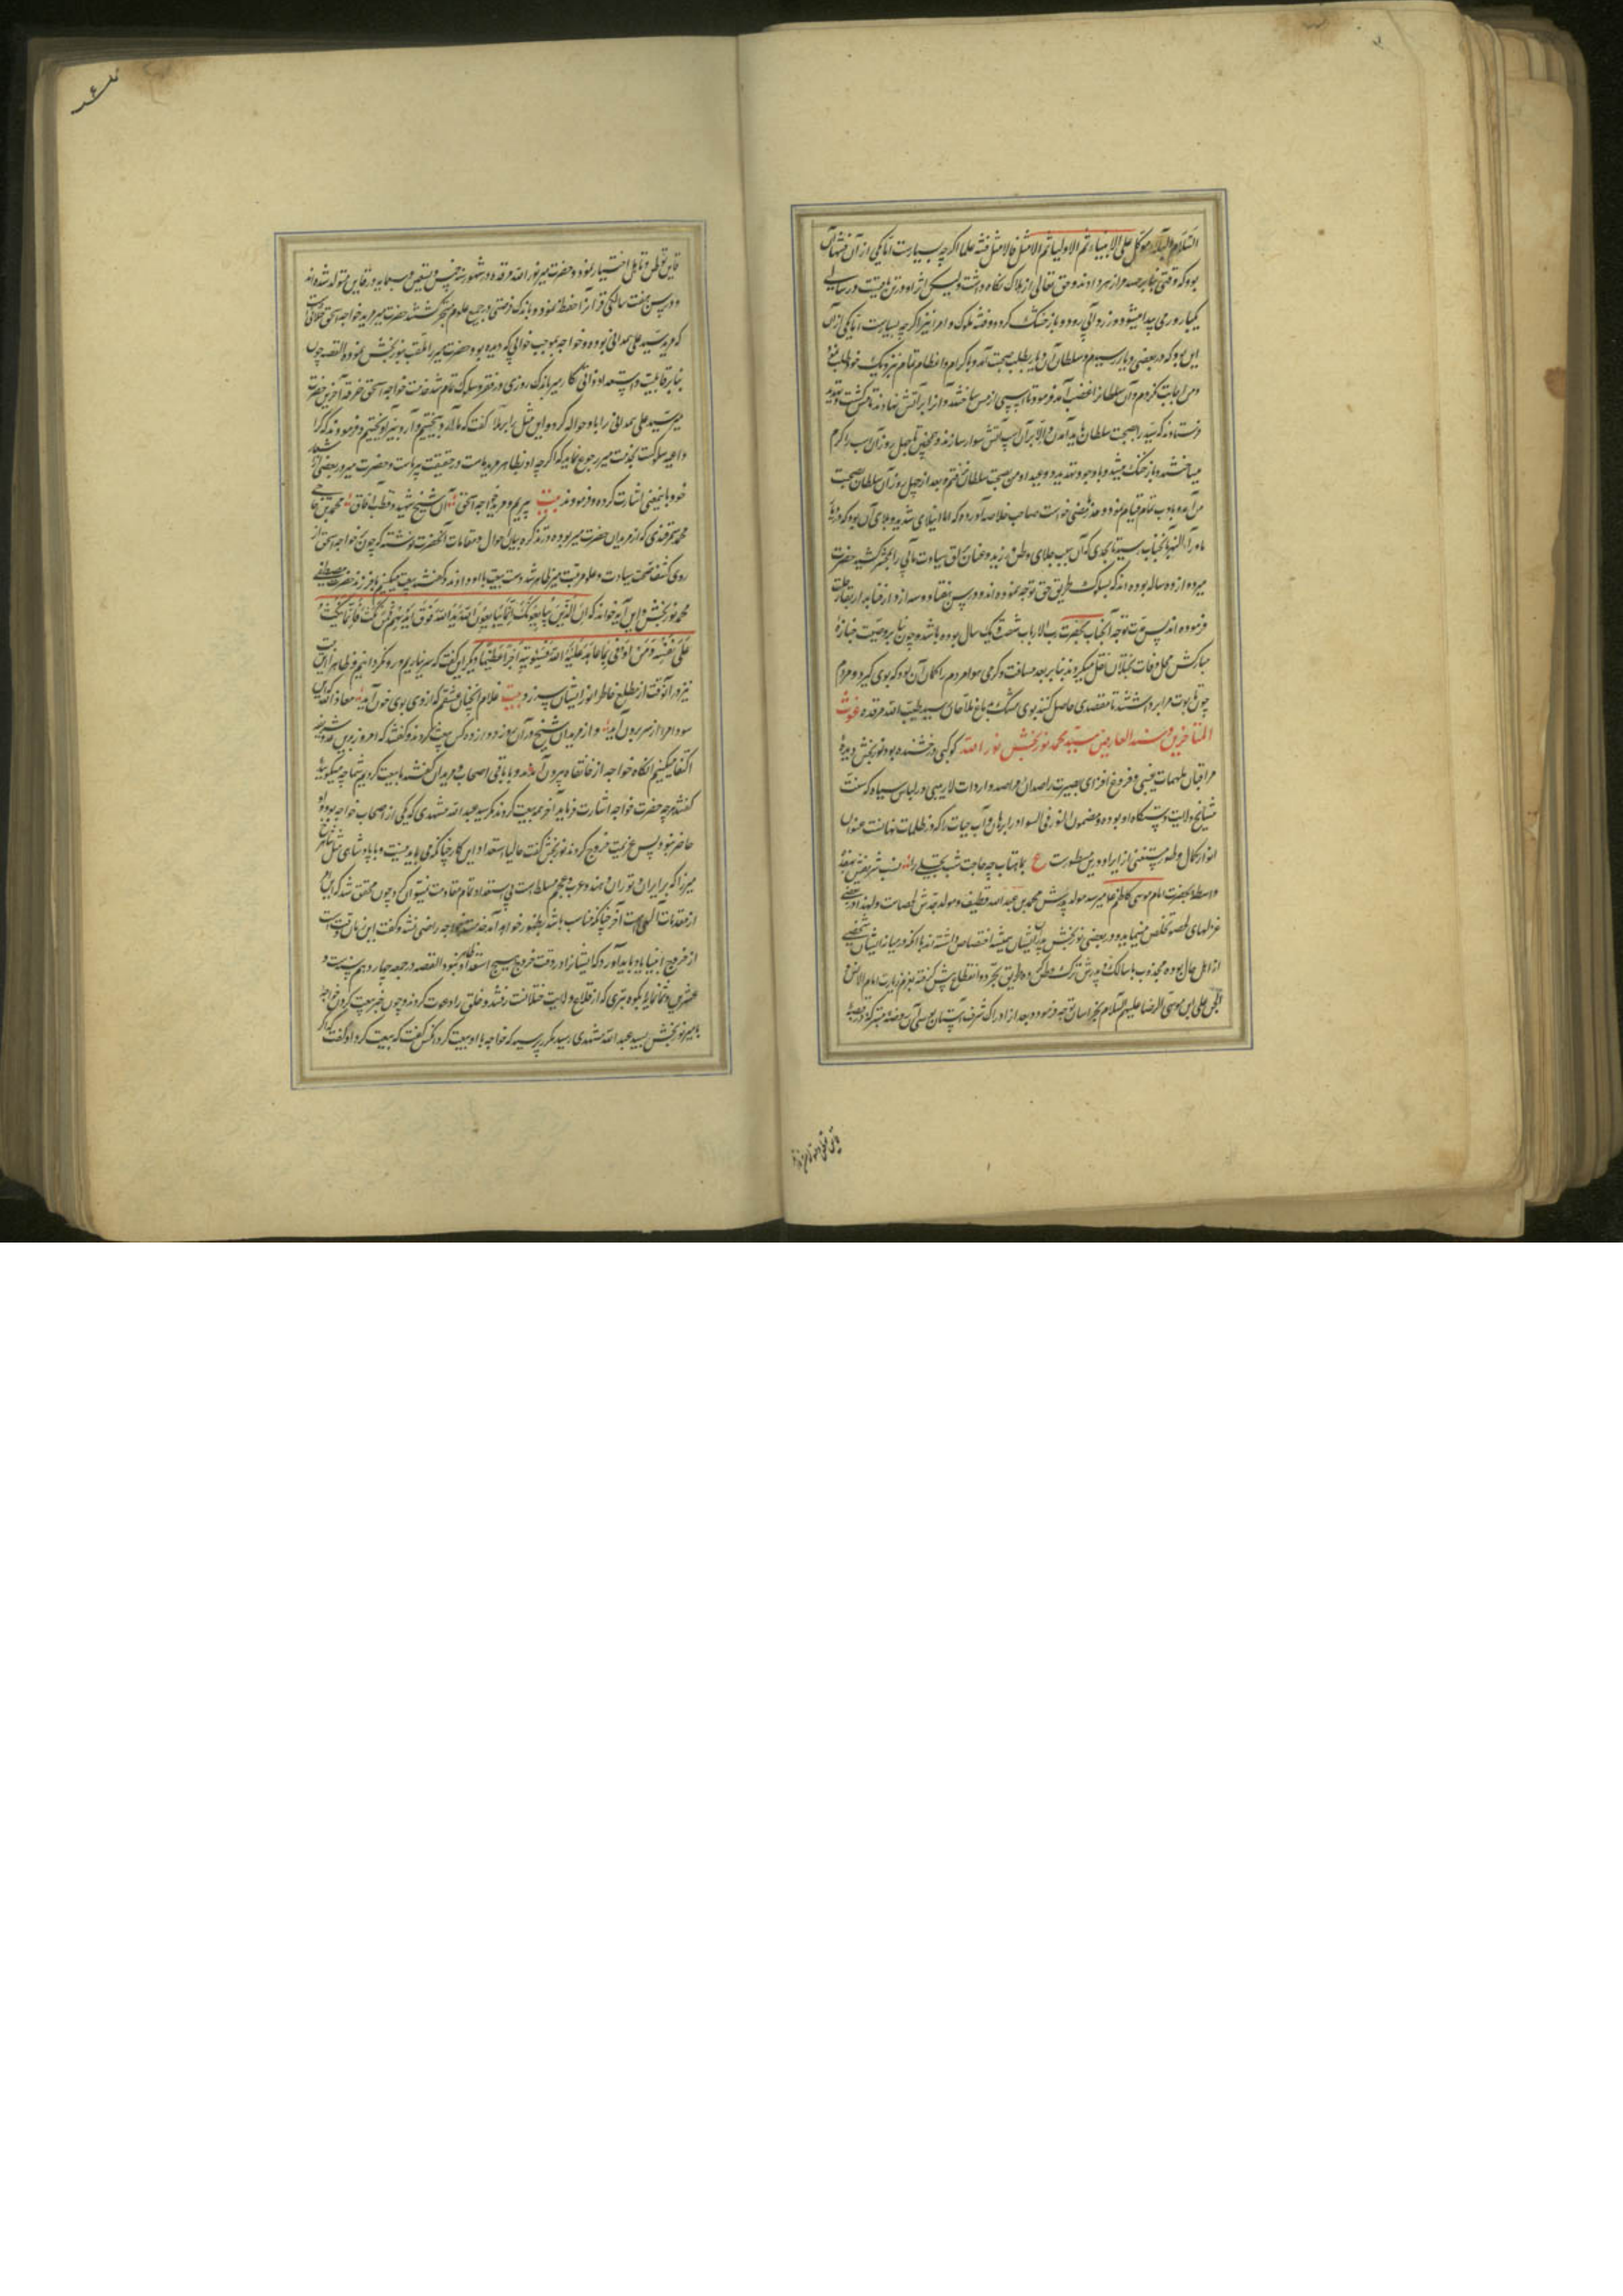 السلام البلاء موکل علی الانبیاء ثم الاولیا ثم الامثل فالامثل فتنه علما اگرچه بسیارست اما یکی از آن فتنها آن
بود که وقتی بنابر حسد مرا زهر دادند و حق تعالی از هلاک نگاه داشت و لیکن اثر او در تن باقیست در سالی
یکبار ورمی پیدا میشود و زردآبی رود و باز خشک گردد و فتنه ملوک و امرا نیز اگرچه بسیارست اما یکی از آن
این بود که در بعضی دیار رسیدم و سلطان آن دیار بطلب صحبت آمد و با کرام و اعظام تمام نزدیک خود طلب نمود
و من اجابت نکردم و آن سلطانرا غضب آمد فرمود تا اسپی از مس ساختند و آنرا بر آتش نهادند تا سرخ گشت و تهدید
فرستادند که سید را بصحبت سلطان باید آمدن و الا بر آن اسپ آتش سوار سازند و همچنین تا چهل روز آن اسپ را گرم
میساختند و باز خنک میشد و با وجود تهدید و وعید او من بصحبت سلطان نرفتم و بعد از چهل روز آن سلطان بصحبت
من آمد و بادب تمام قیام نمود و عذر ماضی خواست صاحب خلاصه آورده که اما ابتلای شدید و بلای آن بود که در
ماوراء النهر بآنجناب رسید تا بحدی که آن سبب جلای وطن ورزید و عنان
میر دوازده ساله بوده اند که بسلوک طریق حق توجه نموده اند و در سن هفتاد و سه از دار فنا بدار بقا رحلت
فرموده اند پس مدت توجه آنجناب بحضرت رب الارباب شصت و یک سال بوده باشد و چون بنا بر وصیت جنازهٔ
مبارکش از محل وفات بختلان نقل میکردند بنابر بعد مسافت و گرمی هوا مردم را گمان آن بود که بوی گیرد و مردم
چون تابوت مرا برداشتند تا مقصدی حاصل کنند بوی مشک بدماغ سید طیب الله مرقده غوث
المتاخرین و سند العارفین سید محمد نوربخش نور الله کوکبی درخشنده بود نوربخش دیدهٔ
مراقبان ملهمات غیبی و فروغ افزای بصیرت راصدان مراصد واردات لاریبی و در لباس سیاه که سنت
مشایخ ولایت دستگاه او بوده مضمون النور فی السواد را برهان و آب حیات را که در ظلمات نهانست عنوان
انوار کمال و ظهور مستغنی از ایراد درین سطورست ع بماهتاب چه حاجت شب تجلی را نسب شریفش بهفده
واسطه بحضرت امام موسی کاظم علیه میرسد مولد پدرش محمد بن عبدالله قطیف و مولد جدش لحصاست و لهذا در بعضی
غزلهای لحصوی تخلص مینماید و در بعضی نوربخش پدران ایشان همیشه اختصاص داشته اند بآنکه در میان ایشان شخصی
از اهل حال بوده مجذوب یا سالک و پدرش ترک وطن کرده طریق تجرد و انقطاع پیش گرفته بعزم زیارت امام الانس و
الجن علی ابن موسی الرضا علیهم السلام بخراسان توجه فرموده و بعد از ادراک شرف آستان بوسی آن روضه متبرکه در قصبه
قاین توطن و تاهل اختیار نموده و حضرت میر نور الله مرقده در شهور سنه خمس و تسعین و سبعمایه در قاین متولد شده اند
و در سن هفت سالگی قرآنرا حفظ نمود و باندک فرصتی در جمیع علوم متبحر گشتند حضرت میر مرید خواجه اسحق ختلانی است
که مرید سید علی همدانی بوده و خواجه بموجب خوابی که دیده بود حضرت میر را ملقب بنوربخش نموده القصه چون
بنابر قابلیت و استعداد ذاتی کار میر باندک روزی در فقر و سلوک تمام شد خدمت خواجه اسحق خرقه آخرین حضرت
میر سید علی همدانی را باو حواله کرد و این مثل را برملا گفت که ما آرد بیختیم و آردبیز آویختیم و فرمودند که هر کرا
داعیه سلوکست بخدمت میر رجوع نماید که اگرچه او بظاهر مرید ماست در حقیقت پیر ماست و حضرت میر در بعضی از اشعار
خود باینمعنی اشارت کرده و فرموده‌اند بیت پیریم و مرید خواجه اسحق آن شیخ شهید و قطب آفاق محمد بن حاجی
محمد سمرقندی که از مریدان حضرت میر بوده در تذکره که بیان احوال و مقامات آنحضرت نوشته که چون خواجه اسحق از
روی کشف صحت سیادت و علو مرتبت میر ظاهر شد دست بیعت با او دادند و گفتند بیعت میکنیم با فرزند حضرت مصطفی
محمد نوربخش و این آیه خواند که ان الذین یبایعونک انما یبایعون الله ید الله فوق ایدیهم فمن نکث فانما ینکث
علی نفسه و من اوفی بما عاهد علیه الله فسیوتیه اجرا عظیما و دیگر این گفت که سر نیاریم و رو نگردانیم و ظاهرا این بیت
نیز در آنوقت از مطلع خاطر انور ایشان سرزد بیت غلام آنچنان عشقم که از وی بوی خون آید معاذ الله که این
سودا مرا از سر برون آید و از مریدان شیخ در آن روز دوازده کس بیعت کردند و گفتند که امروز برین عدد شریف
اکتفا میکنیم آنگاه خواجه از خانقاه بیرون آمد و با باقی اصحاب و مریدان گفتند ما بیعت کردیم شما چه میگویید
گفتند هرچه حضرت خواجه اشارت فرماید آخر همه بیعت کردند مگر سید عبدالله مشهدی که یکی از اصحاب خواجه بود و او
حاضر نبود پس عزیمت خروج کردند نوربخش گفت حالیا استعداد این کار چنانکه می باید نیست و با پادشاهی مثل شاهرخ
میرزا که بر ایران و توران و هند و عرب و عجم مسلط است بی استعداد تمام مقاومت نمیتوان کرد و چون محقق شد که این امر
از مقدرات الهی است آخر چنانکه مناسب باشد بظهور خواهد آمد خواجه راضی نشد و گفت این زمان وقتست
از خروج انبیا یاد باید آورد که ایشانرا در وقت خروج هیچ استعداد ظاهر نبود القصه در جمعه چاردهم سنه ست و
عشرین و ثمانمایه بکوه تیری که از قلاع ولایت ختلانست رفتند و خلق را دعوت کردند و چون خبر بیعت کردن خواجه
با میر نوربخش بسید عبدالله مشهدی رسید مکرر پرسید که خواجه با او بیعت کرد آنکس گفت که بیعت کرد او گفت که اگر